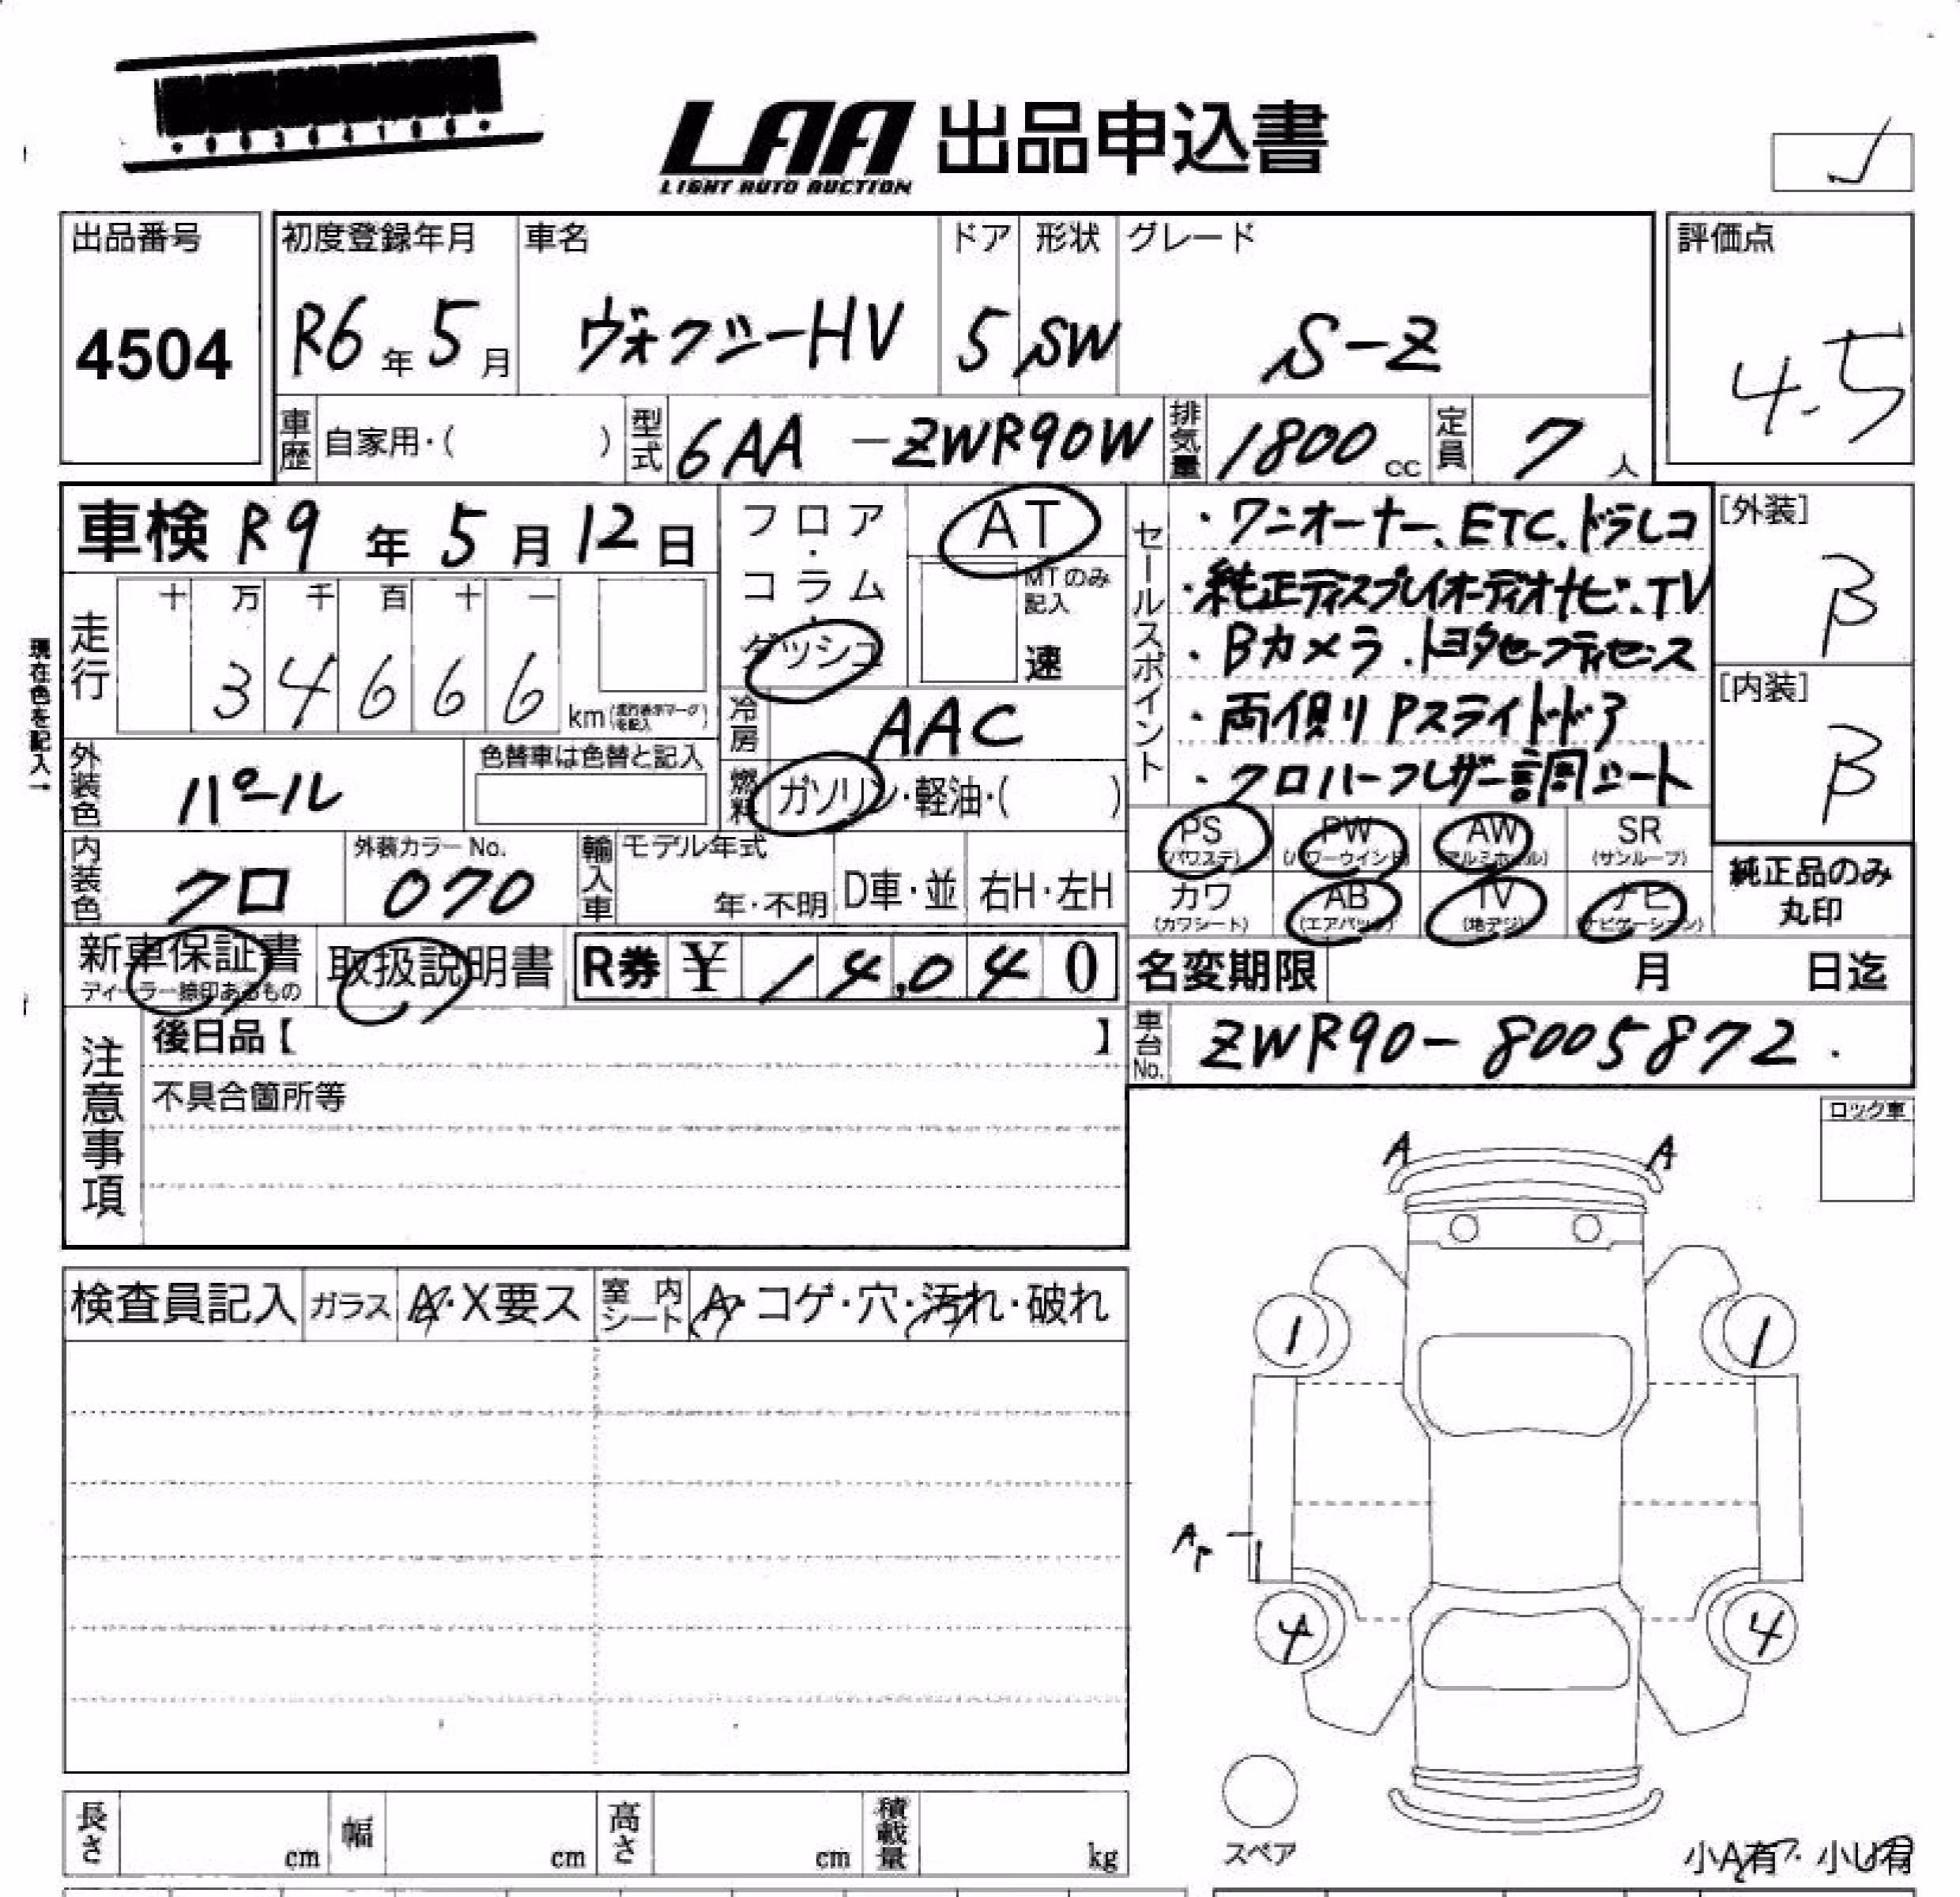 LAA 出品申込書
LIGHT AUTO AUCTION
出品番号 初度登録年月 車名 ドア 形状 グレード 評価点
4504 R6年5月 ヴォクシーHV 5 SW S-Z 4.5
車歴 自家用・( ) 型式 6AA-ZWR90W 排気量 1800cc 定員 7人
車検 R9年5月12日
フロア・コラム・ダッシュ AT
MTのみ記入 速
セールスポイント
・ワンオーナー、ETC、ドラレコ
・純正ディスプレイオーディオナビ、TV
・Bカメラ、トヨタセーフティセンス
・両側Pスライドドア
・クロハーフレザー調シート
[外装] B
[内装] B
現在色を記入→
走行 十 万 千 百 十 一
3 4 6 6 6 km
冷房 AAC
外装色 パール 色替車は色替と記入
燃料 ガソリン・軽油・( )
PS (パワステ) PW (パワーウインド) AW (アルミホイール) SR (サンルーフ)
カワ (カワシート) AB (エアバック) TV (地デジ) ナビ (ナビゲーション)
純正品のみ丸印
内装色 クロ 外装カラーNo. 070 輸入車 モデル年式 年・不明 D車・並 右H・左H
新車保証書 取扱説明書 R券 ¥ 14,040
ディーラー捺印あるもの
名変期限 月 日迄
車台No. ZWR90-8005872.
注意事項
後日品【 】
不具合箇所等
ロック車
A A
検査員記入 ガラス A・X要ス 室内シート A・コゲ・穴・汚れ・破れ
1 1
A
4 4
スペア
長さ cm 幅 cm 高さ cm 積載量 kg
小A有・小U有